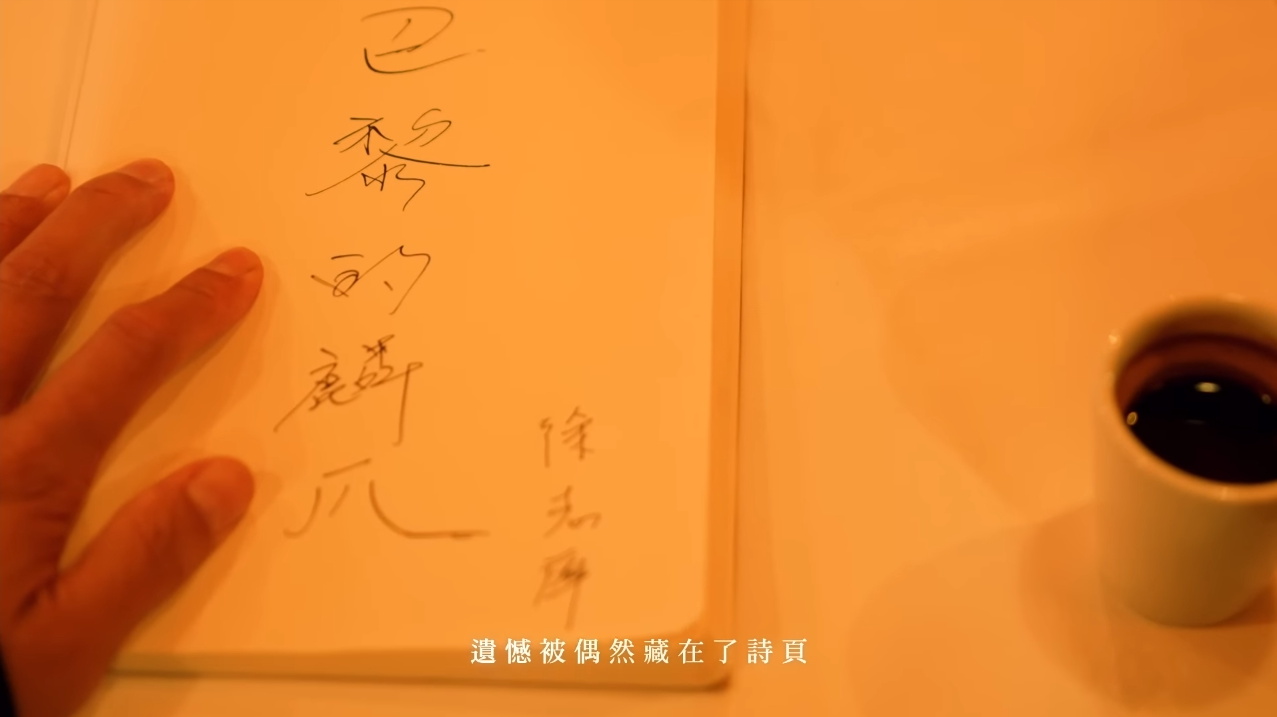 巴黎的麟爪
徐志摩
遺憾被偶然藏在了詩頁